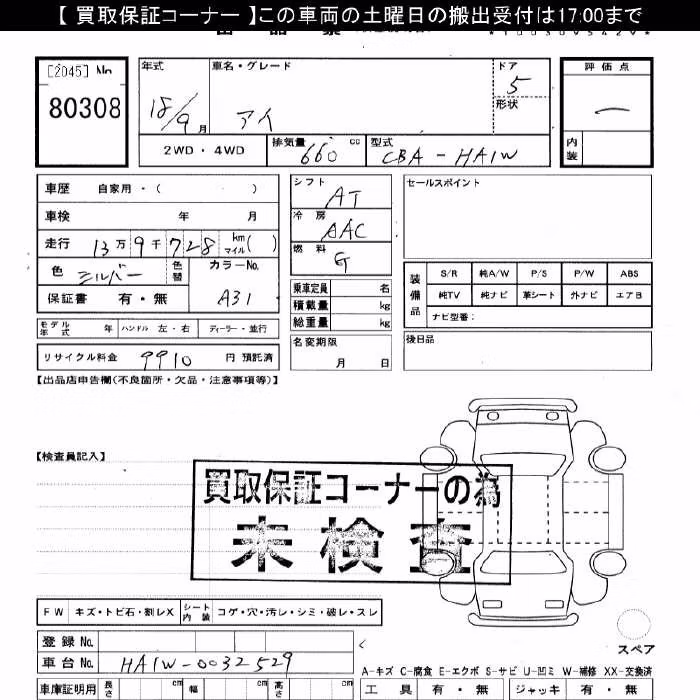 【 買取保証コーナー 】この車両の土曜日の搬出受付は17:00まで
[2045] No
80308
年式
18/9 月
車名・グレード
アイ
ドア
5
形状
評価点
一
内装
2WD・4WD
排気量 660 cc
型式 CBA-HA1W
車歴 自家用・( )
車検 年 月
走行 13万9千728 km マイル( )
色 シルバー 色替
カラーNo. A31
保証書 有・無
シフト AT
冷房 AAC
燃料 G
乗車定員 名
積載量 kg
総重量 kg
名変期限 月 日
セールスポイント
装備品
S/R 純A/W P/S P/W ABS
純TV 純ナビ 革シート 外ナビ エアB
ナビ型番：
後日品
モデル年式 年 ハンドル 左・右 ディーラー・並行
リサイクル料金 9910 円 預託済
【出品店申告欄(不良箇所・欠品・注意事項等)】
【検査員記入】
買取保証コーナーの為
未検査
FW キズ・トビ石・割レX シート内装 コゲ・穴・汚レ・シミ・破レ・スレ
登録No.
車台No. HA1W-0032529
スペア
A-キズ C-腐食 E-エクボ S-サビ U-凹ミ W-補修 XX-交換済
車庫証明用 長さ cm 幅 cm 高さ cm
工具 有・無 ジャッキ 有・無